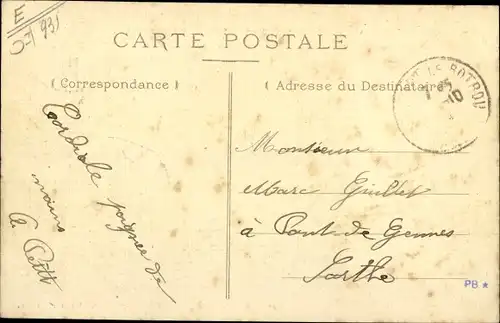 E
CARTE POSTALE
( Correspondance )
( Adresse du Destinataire )
LE ROTROU
Cordiale poignée de
mains
A. Petit
Monsieur
Marc Guillet
à Pont de Gennes
Sarthe
PB *